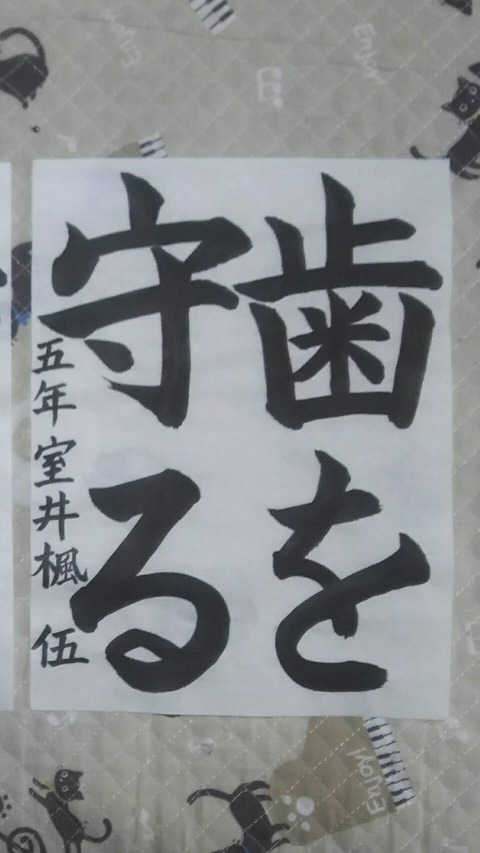 歯を
守る
五年 室井楓伍
Enjoy!
Enjoy!
Enjoy!